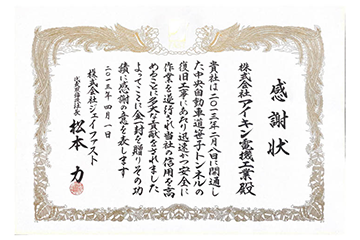 感謝状
株式会社アイキン電機工業殿
貴社は二〇一三年二月八日に開通し
た中央自動車道笹子トンネルの
復旧工事にあたり迅速かつ安全に
作業を遂行され当社の信用を高
めることに多大な貢献をされました
よってここに金一封を贈りその功
績に感謝の意を表します
二〇一三年四月一日
株式会社ジェイファスト
代表取締役社長 松本 力